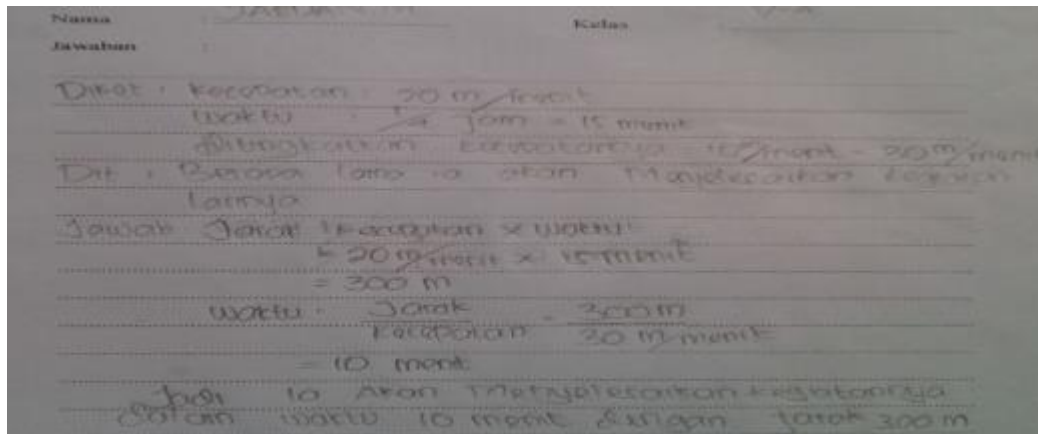 Nama : Kelas
Jawaban :
Diket : kecepatan : 20 m/menit
waktu : 1/4 jam = 15 menit
ditingkatkan kecepatannya = 10/menit = 30 m/menit
Dit : Berapa lama ia akan Menyelesaikan kegiatan
larinya
Jawab Jarak = kecepatan x waktu
= 20 m/menit x 15 menit
= 300 m
waktu = Jarak = 300 m
kecepatan 30 m/menit
= 10 menit
Jadi ia Akan Menyelesaikan kegiatannya
dalam waktu 10 menit dengan jarak 300 m